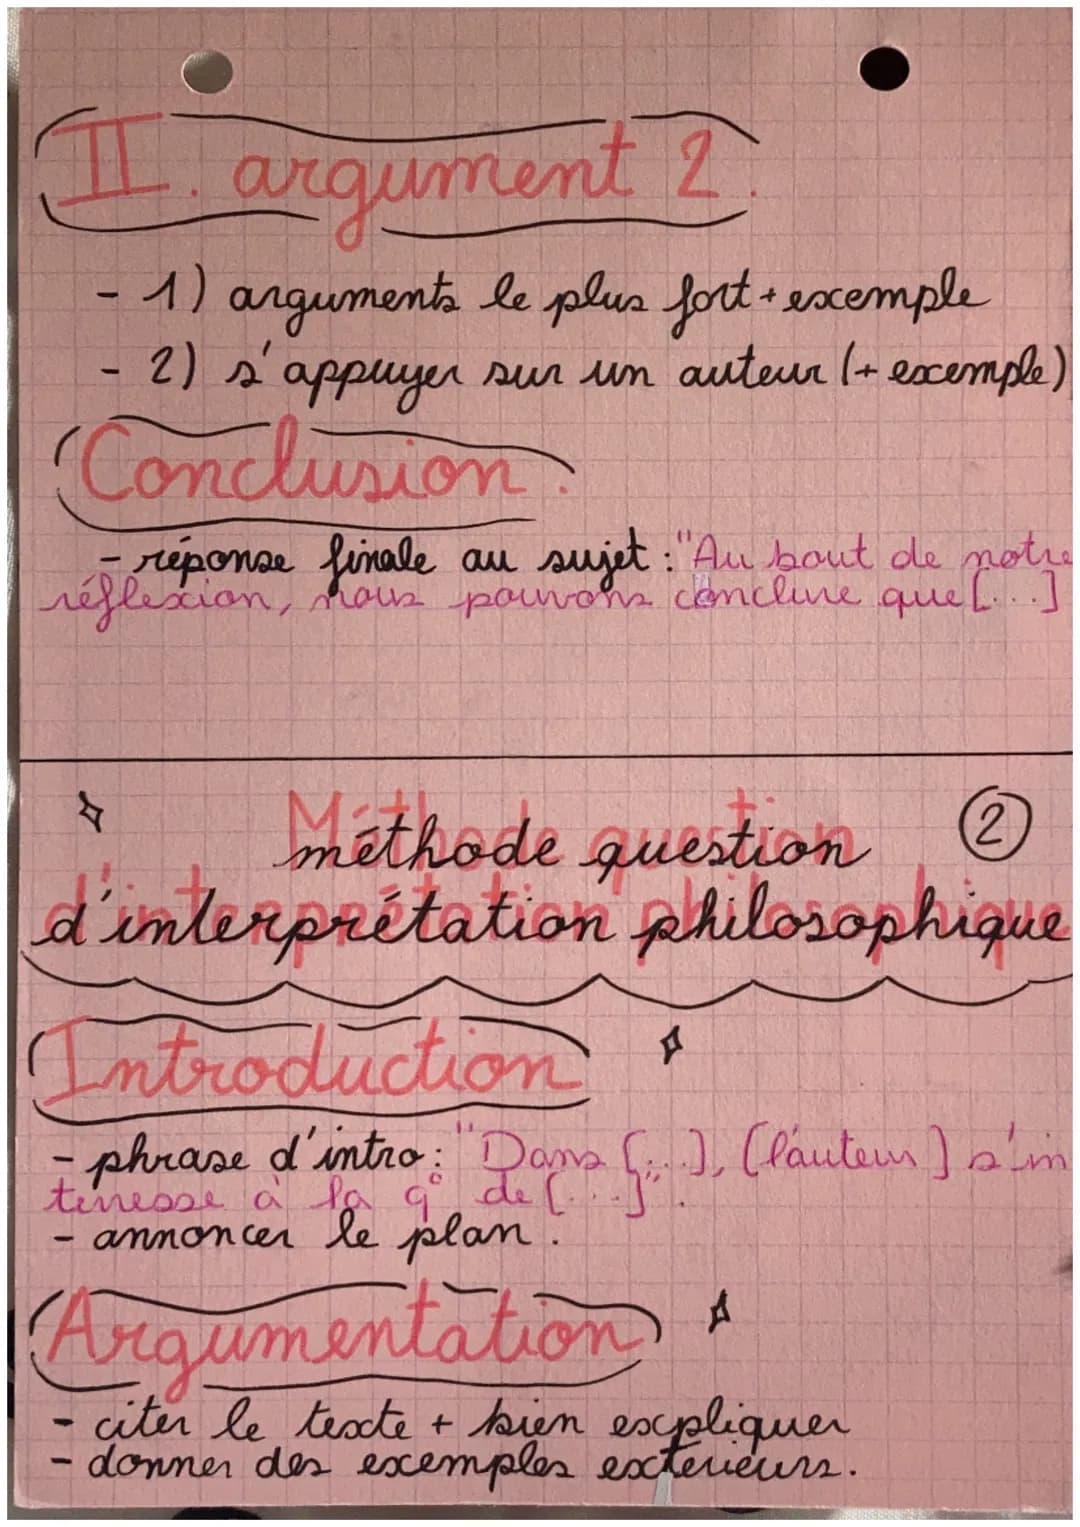 II. argument 2.
- 1) arguments le plus fort + exemple
- 2) s'appuyer sur un auteur (+ exemple)
Conclusion.
- réponse finale au sujet : "Au bout de notre
réflexion, nous pouvons conclure que [...]
Méthode question
méthode question ②
d'interprétation philosophique
Introduction
- phrase d'intro : "Dans [...], [l'auteur] s'in
teresse à la q° de [...]".
- annoncer le plan.
Argumentation
- citer le texte + bien expliquer
- donner des exemples exterieurs.